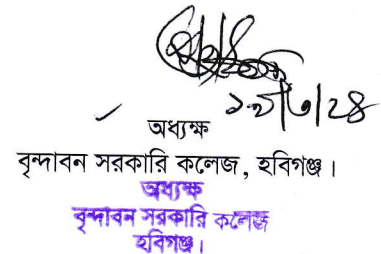 অধ্যক্ষ
বৃন্দাবন সরকারি কলেজ, হবিগঞ্জ।
অধ্যক্ষ
বৃন্দাবন সরকারি কলেজ
হবিগঞ্জ।